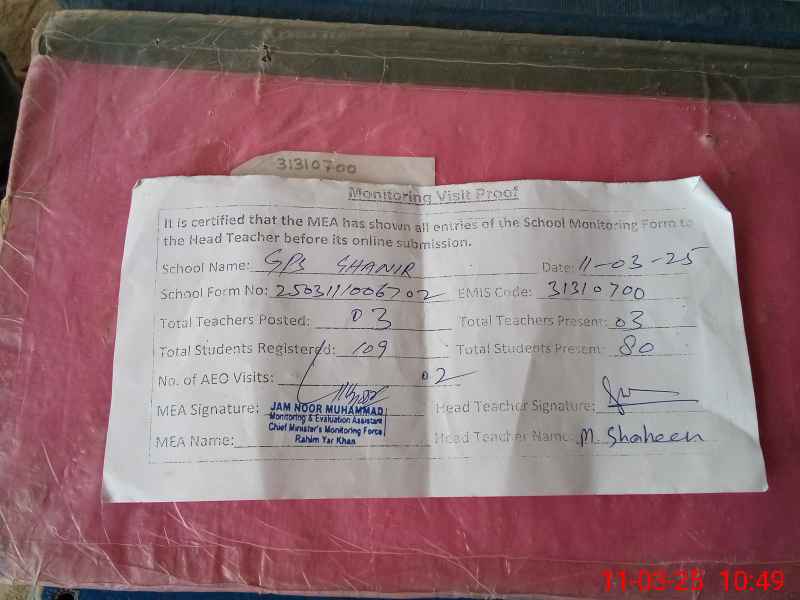 31310700
Monitoring Visit Proof
It is certified that the MEA has shown all entries of the School Monitoring Form to
the Head Teacher before its online submission.
School Name: GPS SHANIR Date: 11-03-25
School Form No: 2503111006702 EMIS Code: 31310700
Total Teachers Posted: 03 Total Teachers Present: 03
Total Students Registered: 109 Total Students Present: 80
No. of AEO Visits: 02
MEA Signature: Head Teacher Signature:
JAM NOOR MUHAMMAD
Monitoring & Evaluation Assistant
Chief Minister's Monitoring Force
Rahim Yar Khan
MEA Name: Head Teacher Name: M. Shaheen
11-03-25 10:49